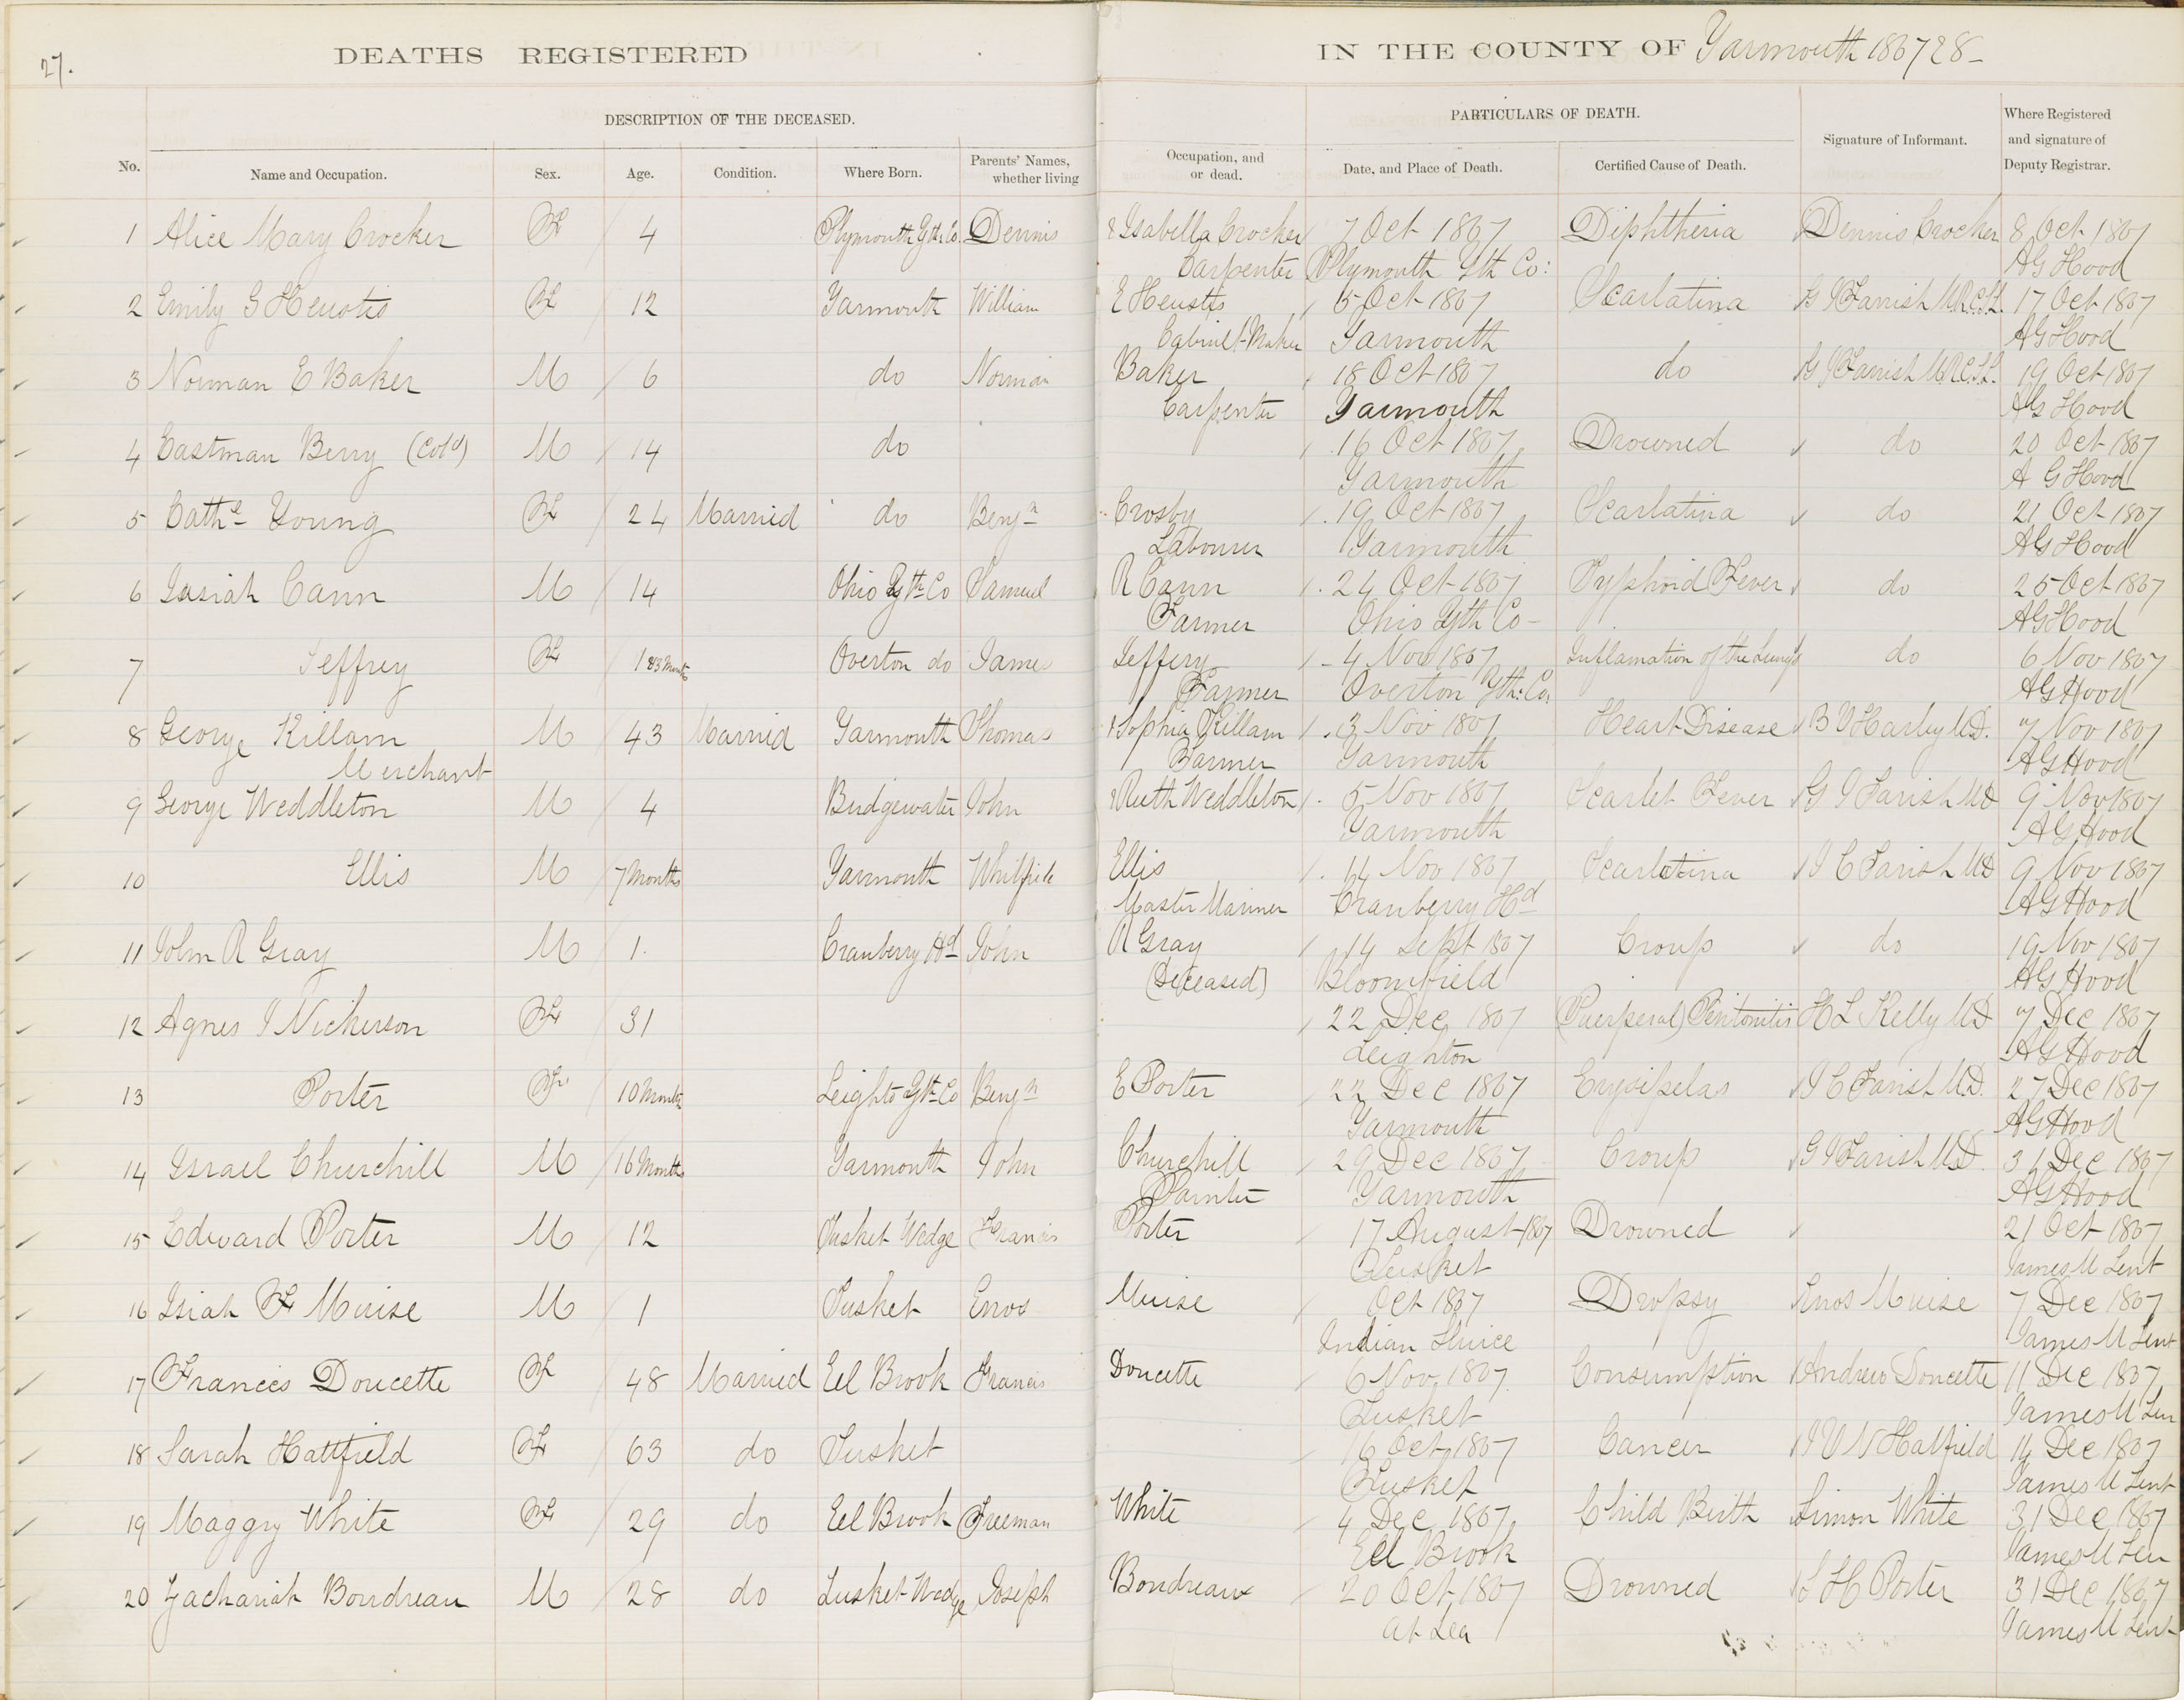 27.
DEATHS REGISTERED IN THE COUNTY OF Yarmouth 1867 28
DESCRIPTION OF THE DECEASED. PARTICULARS OF DEATH.
No. Name and Occupation. Sex. Age. Condition. Where Born. Parents' Names, whether living Occupation, and or dead. Date, and Place of Death. Certified Cause of Death. Signature of Informant. Where Registered and signature of Deputy Registrar.
1 Alice Mary Crocker F 4 Plymouth Yth Co. Dennis & Isabella Crocker 7 Oct 1867 Diphtheria Dennis Crocker 8 Oct 1867
Carpenter Plymouth Yth Co: AG Hood
2 Emily G Heustis F 12 Yarmouth William E Heustis 5 Oct 1867 Scarlatina G J Farish M.R.C.S.L. 17 Oct 1867
Cabinet-Maker Yarmouth AG Hood
3 Norman E Baker M 6 do Norman Baker 18 Oct 1867 do G J Farish M.R.C.S.L. 19 Oct 1867
Carpenter Yarmouth AG Hood
4 Eastman Berry (Cold) M 14 do 16 Oct 1867 Drowned do 20 Oct 1867
Yarmouth A G Hood
5 Cathe Young F 24 Married do Benjn Crosby 19 Oct 1867 Scarlatina do 21 Oct 1867
Labourer Yarmouth AG Hood
6 Isaiah Cann M 14 Ohio Yth Co Samuel R Cann 24 Oct 1867 Typhoid Fever do 25 Oct 1867
Farmer Ohio Yth Co - AG Hood
7 Jeffrey F 1 & 3 Months Overton do James Jeffery 4 Nov 1867 Inflamation of the Lungs do 6 Nov 1867
Farmer Overton Yth: Co. AG Hood
8 George Killam M 43 Married Yarmouth Thomas & Sophia Killam 3 Nov 1867 Heart Disease 7 Nov 1867
Merchant Farmer Yarmouth AG Hood
9 George Weddleton M 4 Bridgewater John & Ruth Weddleton 5 Nov 1867 Scarlet Fever G J Farish MD 9 Nov 1867
Yarmouth AG Hood
10 Ellis M 7 Months Yarmouth Whitfield Ellis 14 Nov 1867 Scarlatina J C Farish MD 9 Nov 1867
Master Mariner Cranberry Hd AG Hood
11 John R Gray M 1 Cranberry Hd John R Gray 14 Sept 1867 Croup do 19 Nov 1867
(Deceased) Bloomfield AG Hood
12 Agnes J Nickerson F 31 22 Dec 1867 (Puerperal) Peritonitis H L Kelly MD 7 Dec 1867
Leighton AG Hood
13 Porter F 10 Months Leighto Yth Co Benjn E Porter 22 Dec 1867 Erysipelas J C Farish M.D. 27 Dec 1867
Yarmouth AG Hood
14 Israel Churchill M 16 Months Yarmouth John Churchill 29 Dec 1867 Croup G J Farish M.D. 31 Dec 1867
Painter Yarmouth AG Hood
15 Edward Porter M 12 Tusket Wedge Francis Porter 17 August 1867 Drowned 21 Oct 1867
Tusket James M Lent
16 Isiah F Muise M 1 Tusket Enos Muise Oct 1867 Dropsy Enos Muise 7 Dec 1867
Indian Sluice James M Lent
17 Frances Doucette F 48 Married Eel Brook Francis Doucette 6 Nov 1867 Consumption Andrew Doucette 11 Dec 1867
Tusket James M Len
18 Sarah Hattfield F 63 do Tusket 16 Oct 1867 Cancer J V N Hatfield 14 Dec 1867
Tusket James M Lent
19 Maggy White F 29 do Eel Brook Freeman White 4 Dec 1867 Child Birth Simon White 31 Dec 1867
Eel Brook James M Len
20 Zachariah Boudreau M 28 do Tusket Wedge Joseph Boudreaux 20 Oct 1867 Drowned H Porter 31 Dec 1867
at Sea James M Lent